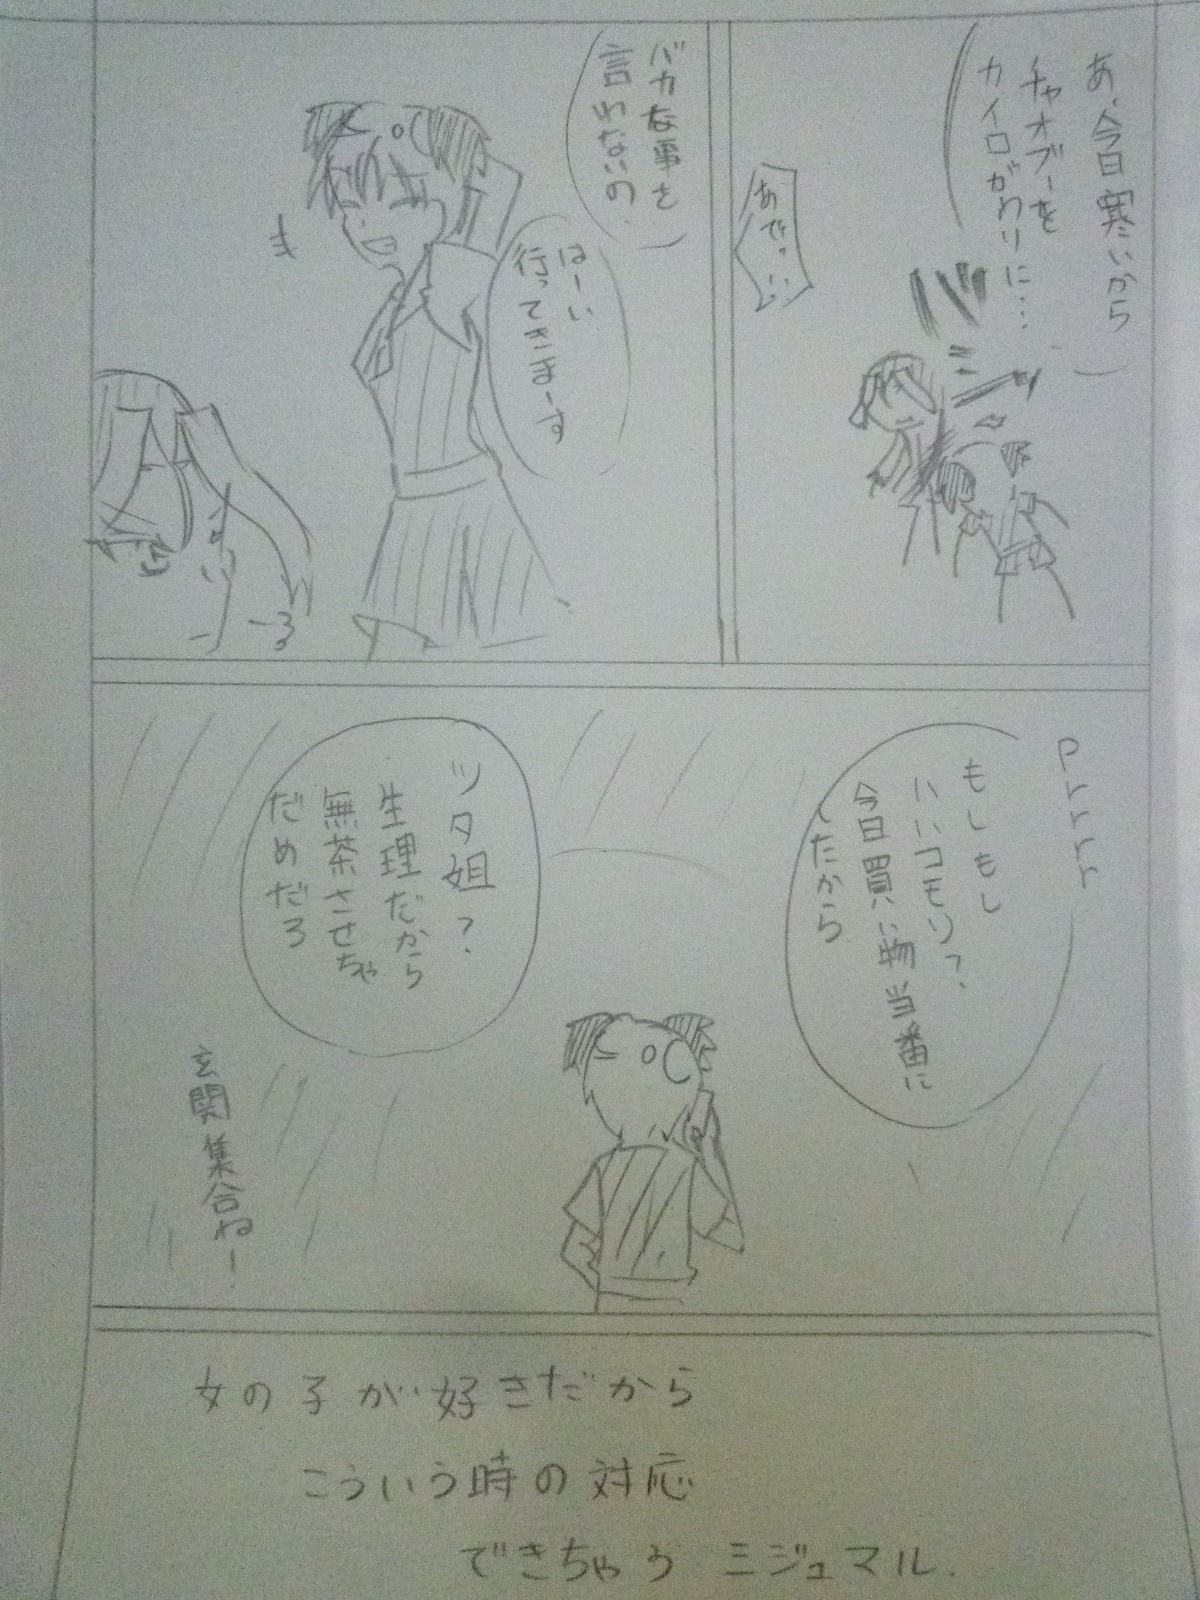 あ、今日寒いから
チャオブーを
カイロがわりに…
バシッ
あでっ
バカな事を
言わないの
はーい
行ってきまーす
Prrrr
もしもし
いいコモリ?
今日買い物当番に
したから
ツタ姐?
生理だから
無茶させちゃ
だめだろ
玄関集合ねー!
女の子が好きだから
こういう時の対応
できちゃうミジュマル.